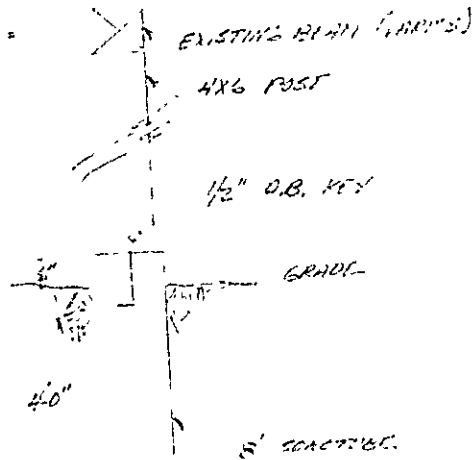 EXISTING BEAM
4X6 POST
1/2" O.B. KEY
6"
GRADE
4'0"
8"